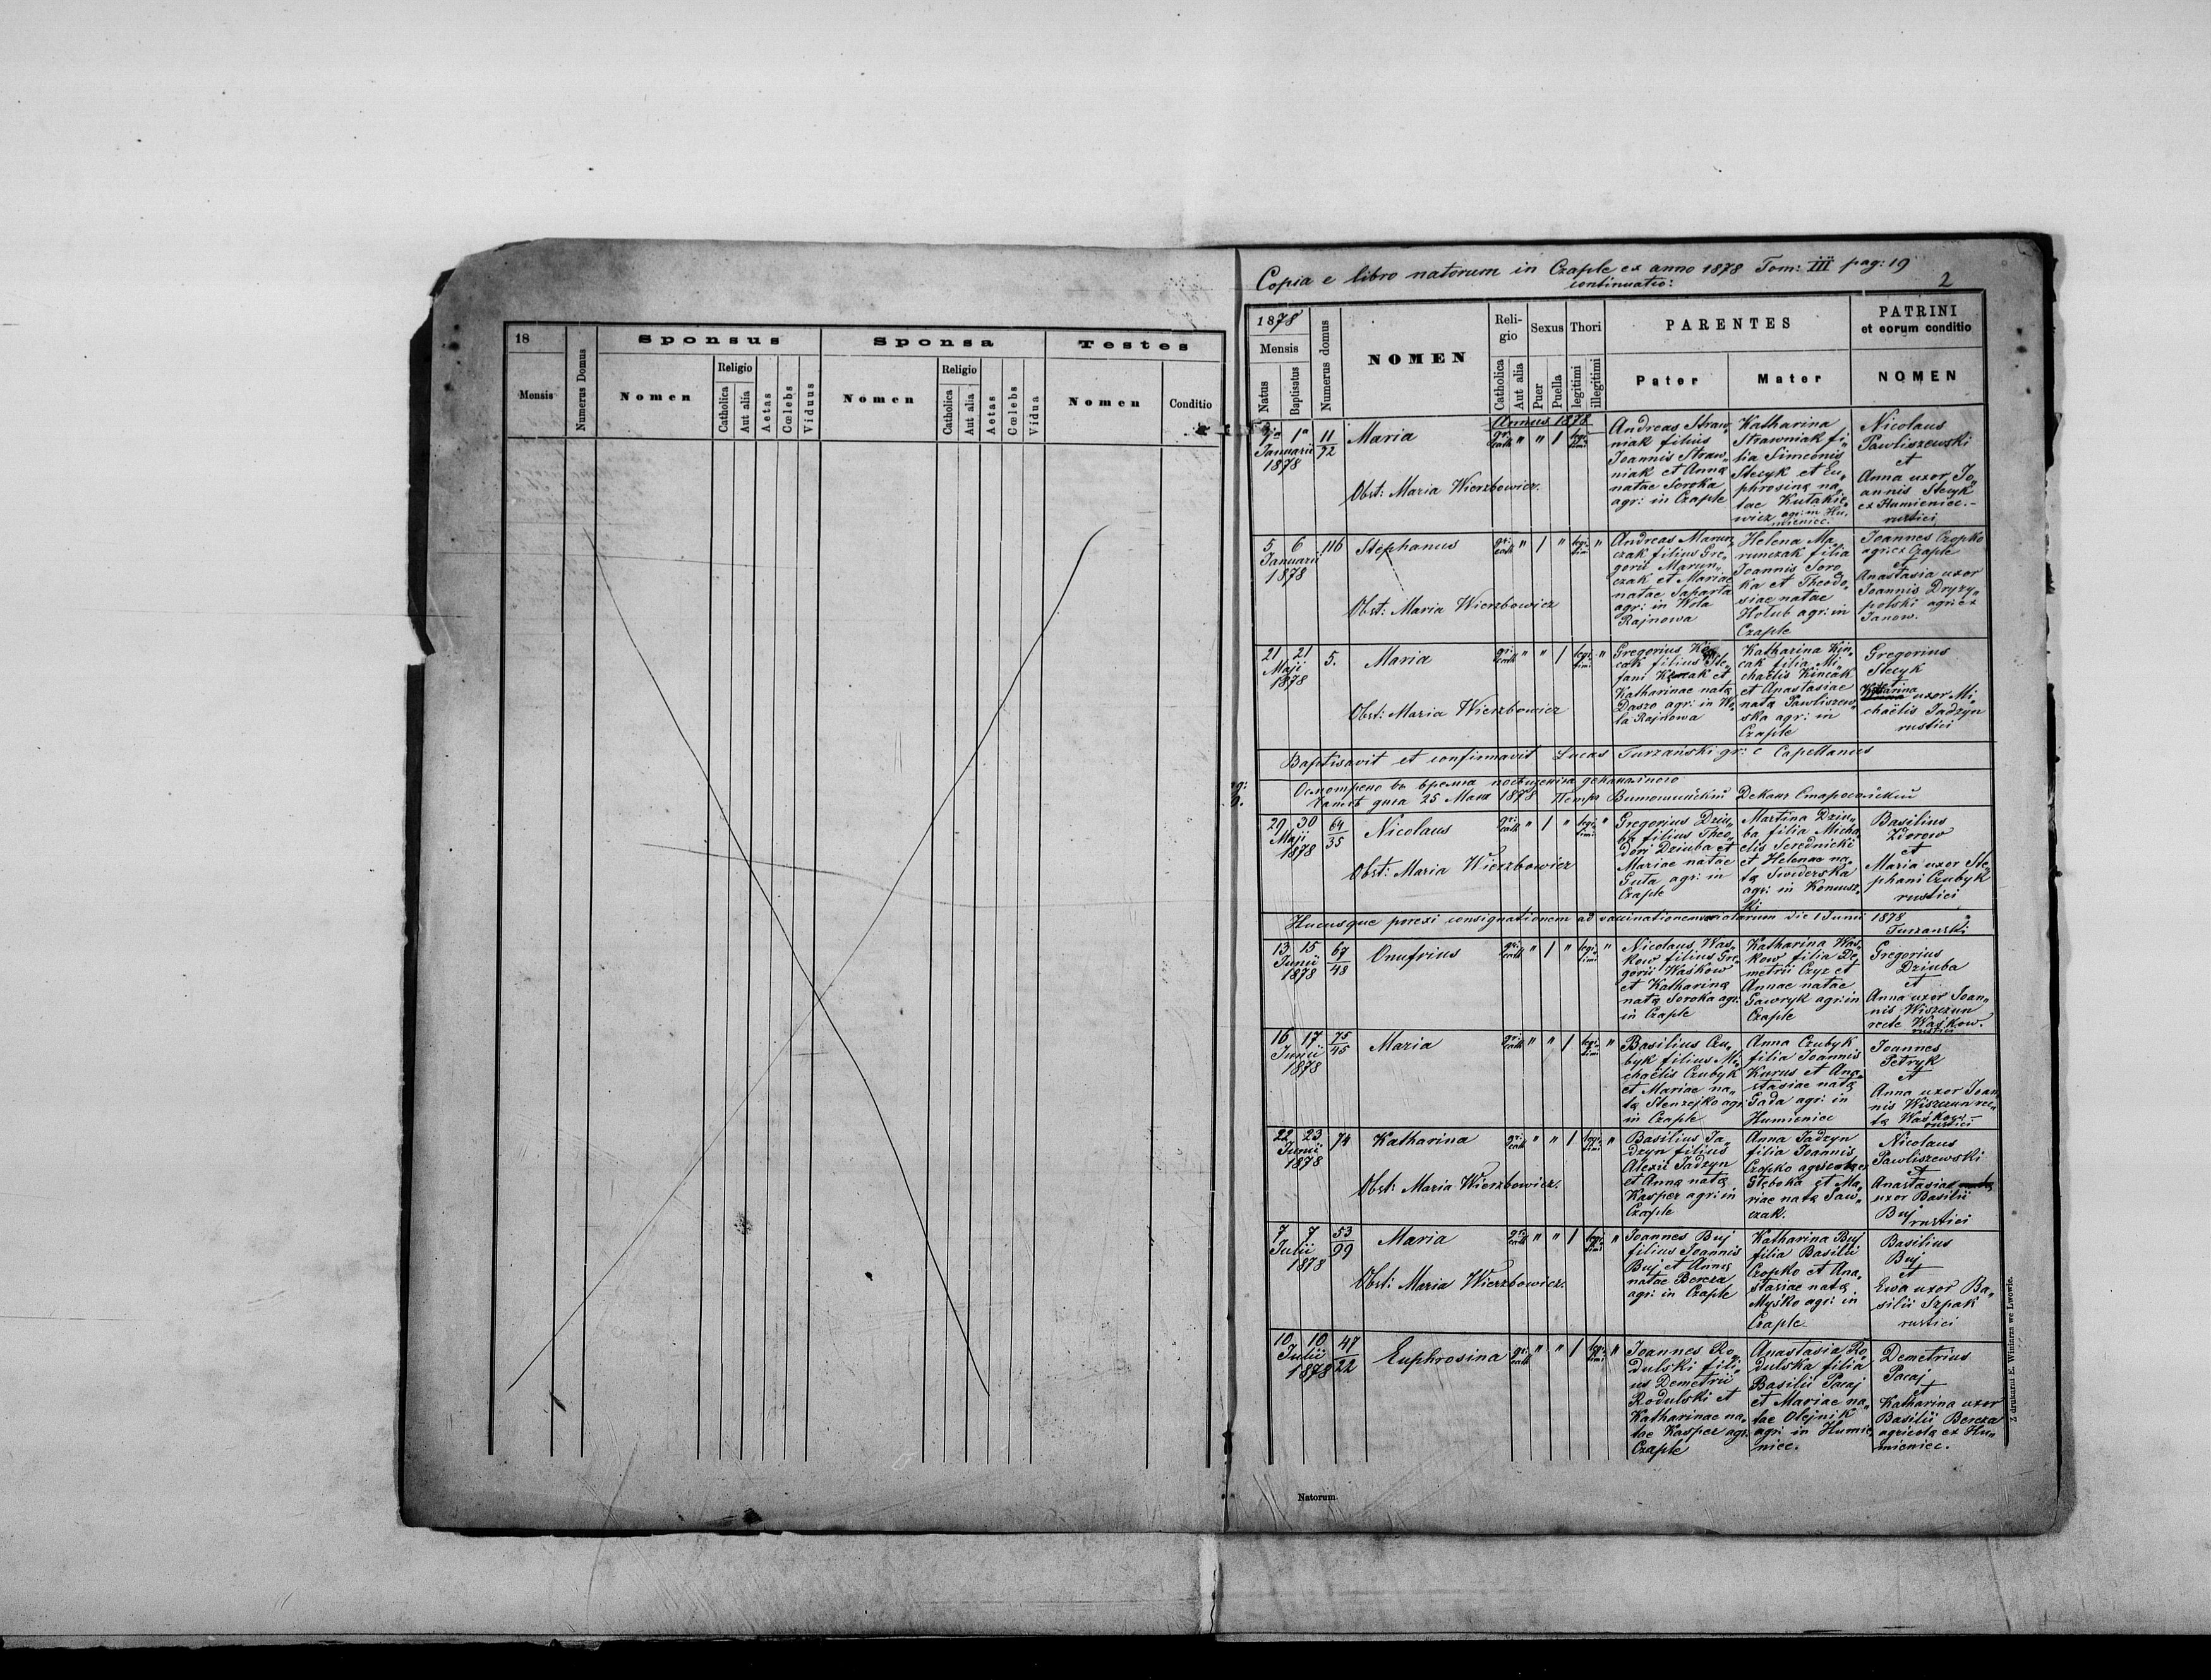 18
Mensis
Numerus Domus
Sponsus
Nomen
Religio
Catholica
Aut alia
Aetas
Cœlebs
Viduus
Sponsa
Nomen
Religio
Catholica
Aut alia
Aetas
Cœlebs
Vidua
Testes
Nomen
Conditio
Copia e libro natorum in Czaple ex anno 1878 Tom: III pag: 19
continuatio:
2
1878
Mensis
Natus
Baptisatus
Numerus domus
NOMEN
Reli-
gio
Catholica
Aut alia
Sexus
Puer
Puella
Thori
legitimi
illegitimi
PARENTES
Pater
Mater
PATRINI
et eorum conditio
NOMEN
Annus 1878
1a
Januarii
1878
11
92
Maria
Obst: Maria Wierzbowicz.
gr:
cath
" " 1
legi
timi
Andreas Straw„
niak filius
Joannis Straw„
niak et Anna
natae Soroka
agr: in Czaple
Katharina
Strawniak fi„
lia Simeonis
Stecyk et Eu„
phrosina na„
tae Kutakie„
wicz agr: in Hu„
mieniec.
Nicolaus
Pawliszewski
et
Anna uxor Jo„
annis Stecyk
ex Humieniec.-
rustici
5 6
Januarii
1878
116
Stephanus
Obst: Maria Wierzbowicz
gr:
cath
" 1 "
legi
tim:
"
Andreas Marun„
czak filius Gre„
gorii Marun„
czak et Mariae
natae Saparta
agr: in Wola
Rajnowa
Helena Ma„
runczak filia
Joannis Soro„
ka et Theodo„
siae natae
Hotub agr: in
Czaple
Joannes Czopko
agr: ex Czaple
et
Anastasia uxor
Joannis Dryzy„
polski agr: ex
Janow.
21 21
Maji
1878
5.
Maria
Obst: Maria Wierzbowicz
gr:
cath
" " 1
legi
timi
"
Gregorius
cak filius Ste„
fani Kincak et
Katharinae nata
Daszo agr: in Wo„
la Rajnowa
Katharina Kin„
cak filia Mi„
chaëlis Kincak
et Anastasiae
nata Pawliszew„
ska agr: in
Czaple
Gregorius
Stecyk
Katarina
uxor Mi„
chaëlis Jadzyn
rustici
Baptisavit et confirmavit Lucas Turzański gr: c Capellanus
Осмотрено во время
дня 25 Мая 1878 Петръ Деканъ
29 30
Maji
1878
64
35
Nicolaus
Obst: Maria Wierzbowicz
gr:
cath
" 1 "
legi
timi
"
Gregorius Dziu„
ba filius Theo„
dori Dziuba et
Mariae natae
Guta agr: in
Czaple
Martina Dziu„
ba filia Micha„
elis Serednicki
et Helenae na„
ta Swiderska
agr: in Koniusz„
ki
Basilius
Zdorow
et
Maria uxor Ste„
phani Czubyk
rustici
Hucusque porexi consignationem ad vaccinationem variolarum die 1 Junii 1878
Turzański
13 15
Junii
1878
67
48
Onufrius
gr:
cath
" 1 "
legi
timi
"
Nicolaus Was„
kow filius Gre„
gorii Waśkow
et Katharina
nata Soroka agr:
in Czaple
Katharina Was„
kow filia De„
metrii Czyz et
Annae natae
Gawryk agr: in
Czaple
Gregorius
Dziuba
et
Anna uxor Joan„
nis Wiszczun
recte Waśkow.
rustici
16 17
Junii
1878
75
45
Maria
gr:
cath
" " 1
legi
timi
"
Basilius Czu„
byk filius Mi„
chaëlis Czubyk
et Mariae na„
ta Stenzejko agr:
in Czaple
Anna Czubyk
filia Joannis
Kurus et Ana„
stasiae nata
Gada agr: in
Humieniec
Joannes
Petryk
et
Anna uxor Joan
nis Wiszczun rec„
te Waśkow -
rustici
22 23
Junii
1878
74
Katharina
Obst: Maria Wierzbowicz.
gr:
cath
" " 1
legi
timi
"
Basilius Ja„
dzyn filius
Alexii Jadzyn
et Anna nata
Kasper agr: in
Czaple
Anna Jadzyn
filia Joannis
Czopko agricolae ex
Gleboka et Ma„
riae nata Saw„
czak.
Nicolaus
Pawliszewski
et
Anastasia
uxor Basilii
Buj
rustici
7 7
Julii
1878
53
99
Maria
Obst: Maria Wierzbowicz.
gr:
cath
" " 1
legi
timi
"
Joannes Buj
filius Joannis
Buj et Anna
natae Bereza
agr: in Czaple
Katharina Buj
filia Basilii
Czopko et Ana„
stasiae nata
Myśko agr: in
Czaple.
Basilius
Buj
et
Ewa uxor Ba„
silii Szpak
rustici
10 10
Julii
1878
47
22
Euphrosina
gr:
cath
" " 1
legi
timi
"
Joannes Ro„
dulski fili„
us Demetrii
Rodulski et
Katharinae na„
tae Kasper agr:
Czaple
Anastasia Ro„
dulska filia
Basilii Pacaj
et Mariae na„
tae Olejnik
agr: in Humie„
niec.
Demetrius
Pacaj
et
Katharina uxor
Basilii Bereza
agricola ex Hu„
mieniec.
Natorum.
Z drukarni E. Winiarza we Lwowie.